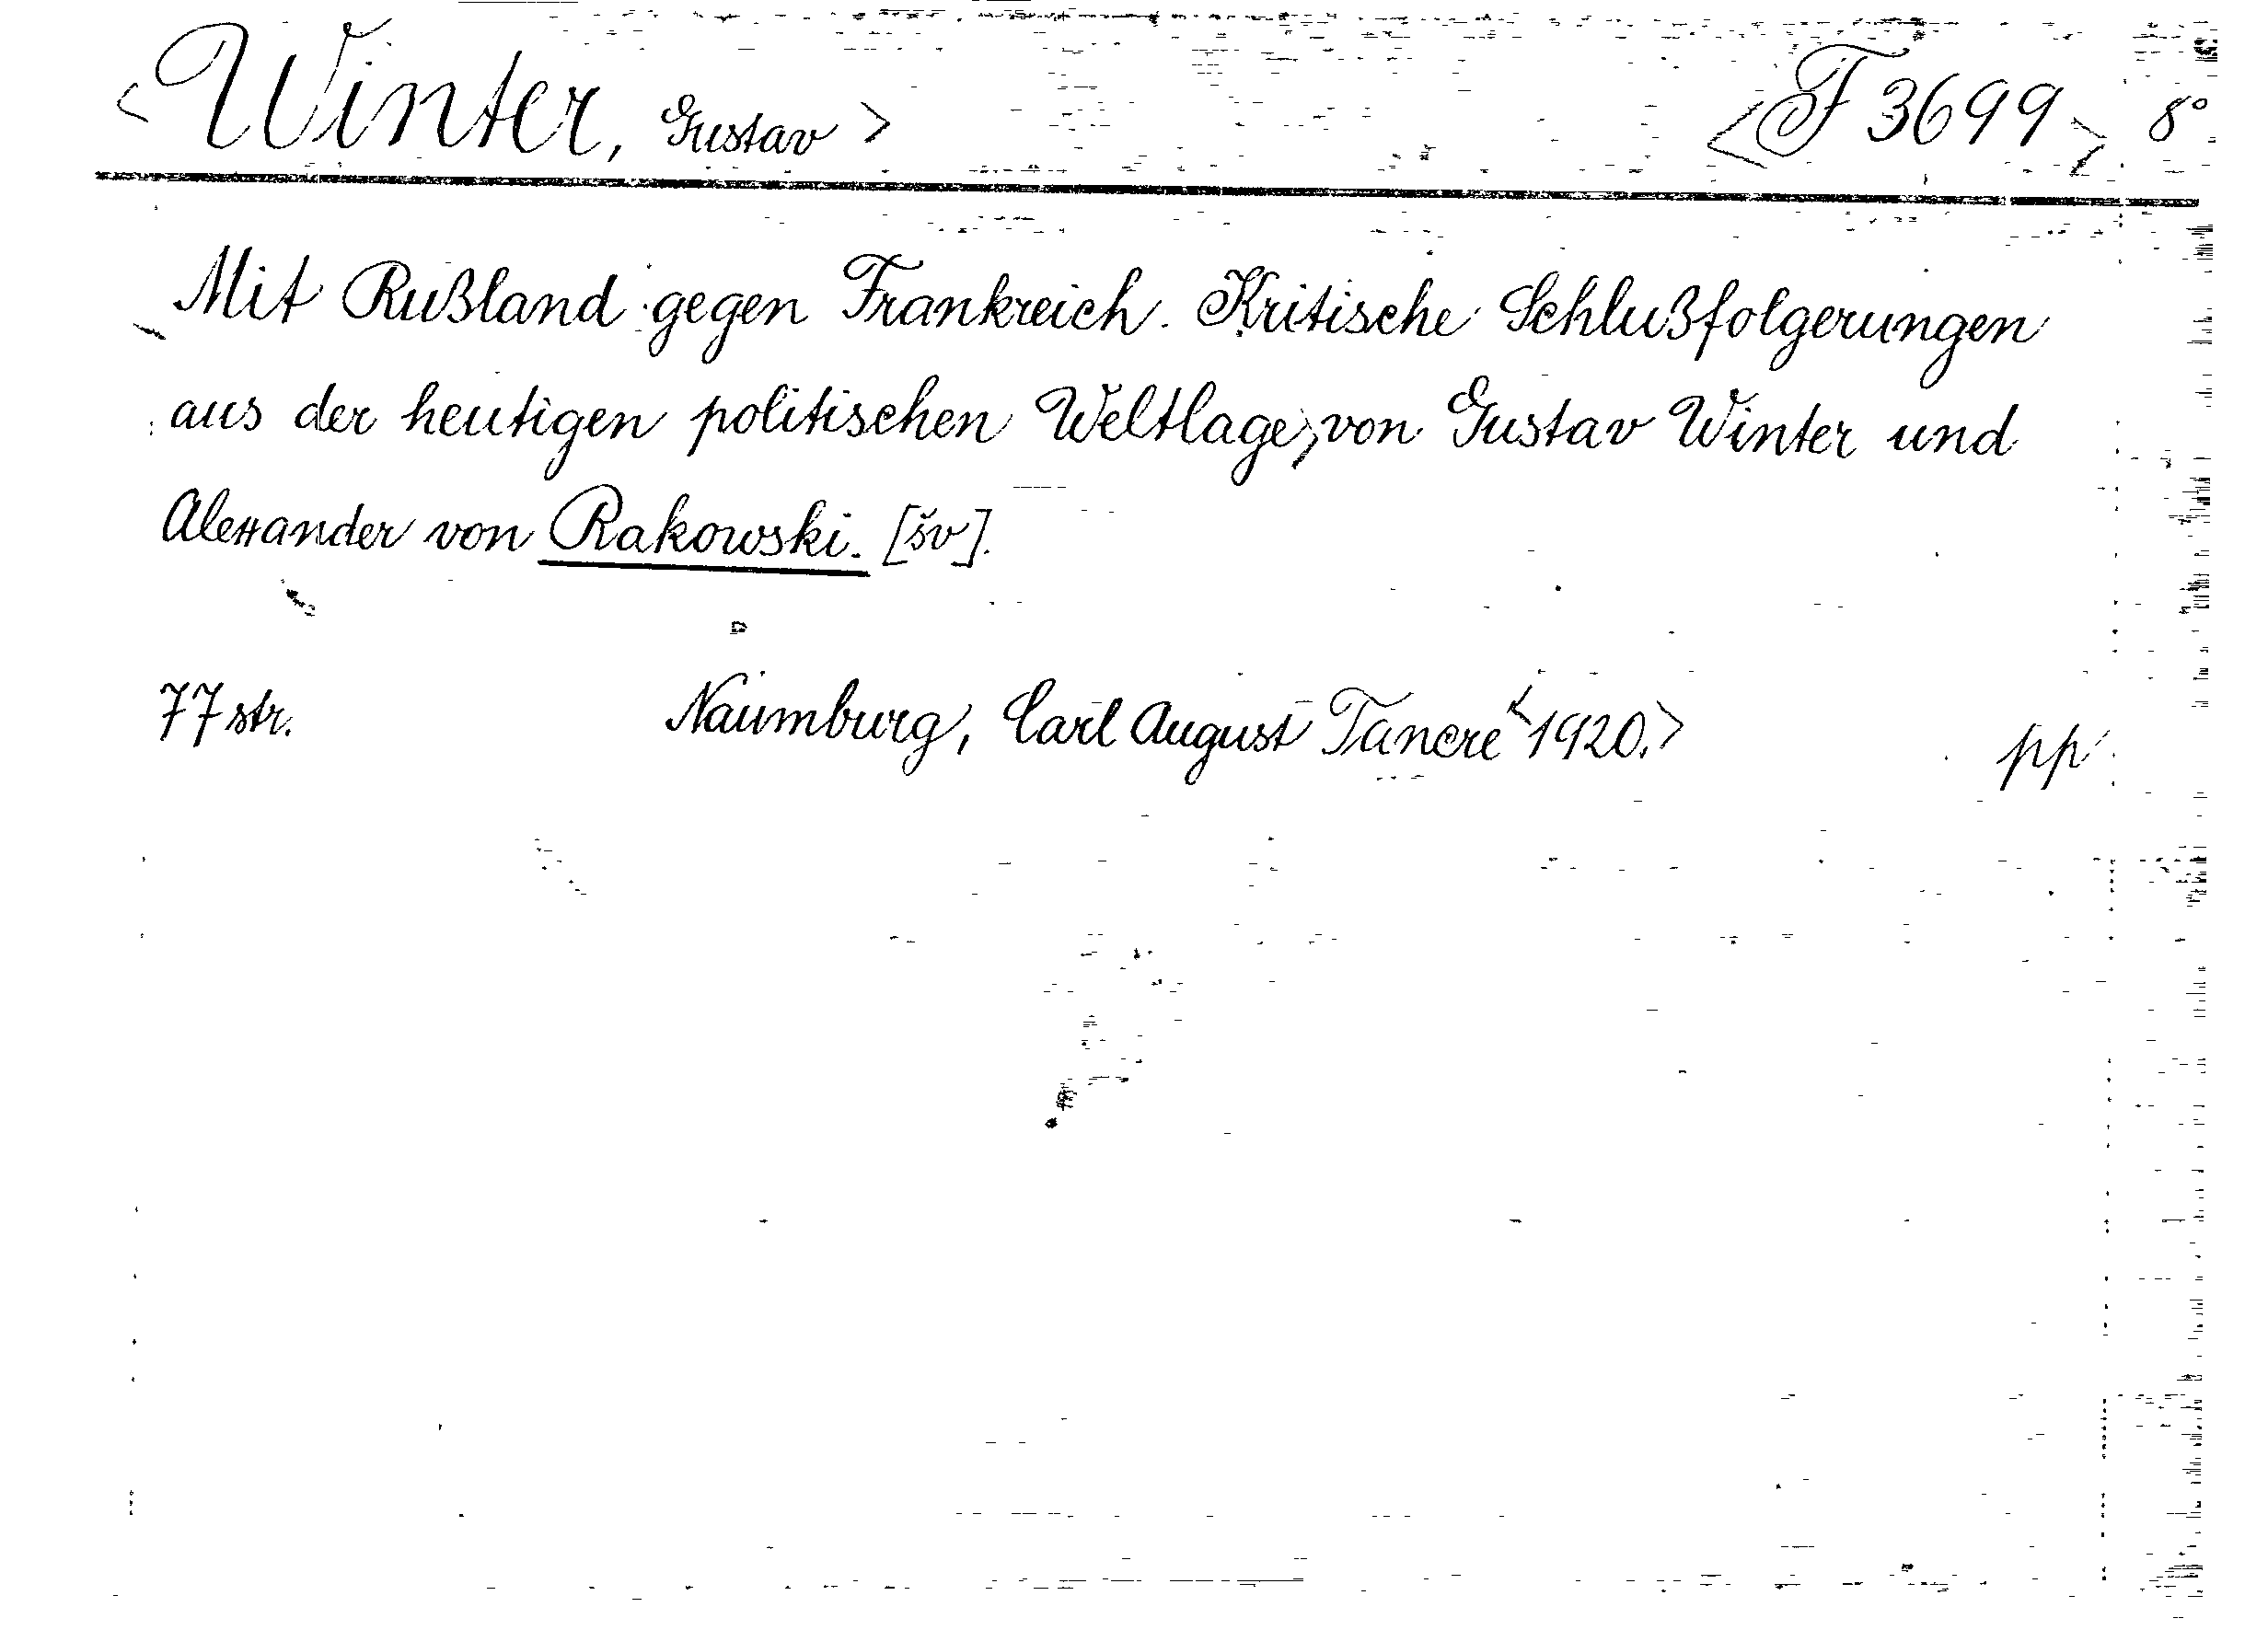 <Winter, Gustav> <F 3699> 8°
Mit Rußland gegen Frankreich. Kritische Schlußfolgerungen
aus der heutigen politischen Weltlage, von Gustav Winter und
Alexander von Rakowski. [šv].
77 str. Naumburg, Carl August Tancré <1920.> pp